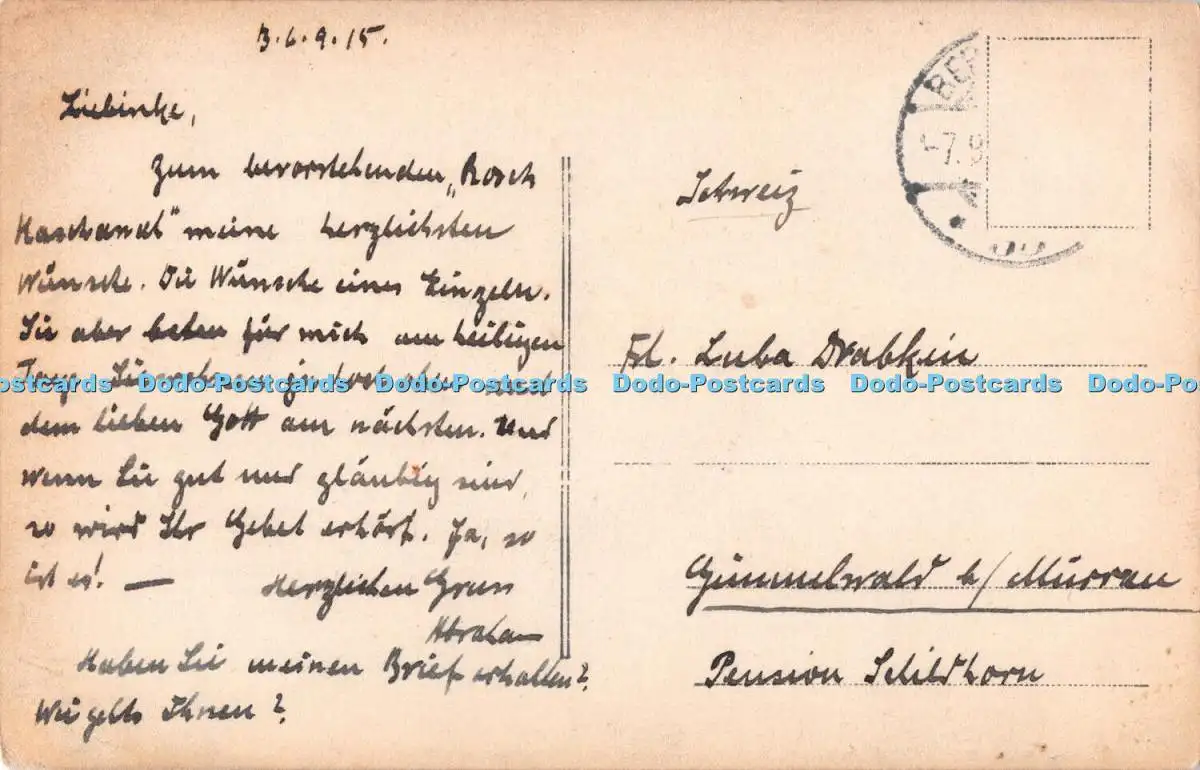 B. 6.9.15.
Liebinke,
Zum bevorstehenden „Rosch
Haschanah" meine herzlichsten
Wünsche. Die Wünsche eines Einzeln.
Sie aber beten für mich am heiligen
Tage. Sie
dem lieben Gott am nächsten. Und
wenn Sie gut und gläubig sind,
so wird Ihr Gebet erhört. Ja, so
ist es! —
Herzlichen Gruss
Abraham
Haben Sie meinen Brief erhalten?
Wie gehts Ihnen?
BER
-7.9
Schweiz
Frl. Luba Drabkin
Gimmelwald b/Mürren
Pension Schildhorn
Dodo-Postcards Dodo-Postcards Dodo-Postcards Dodo-Postcards